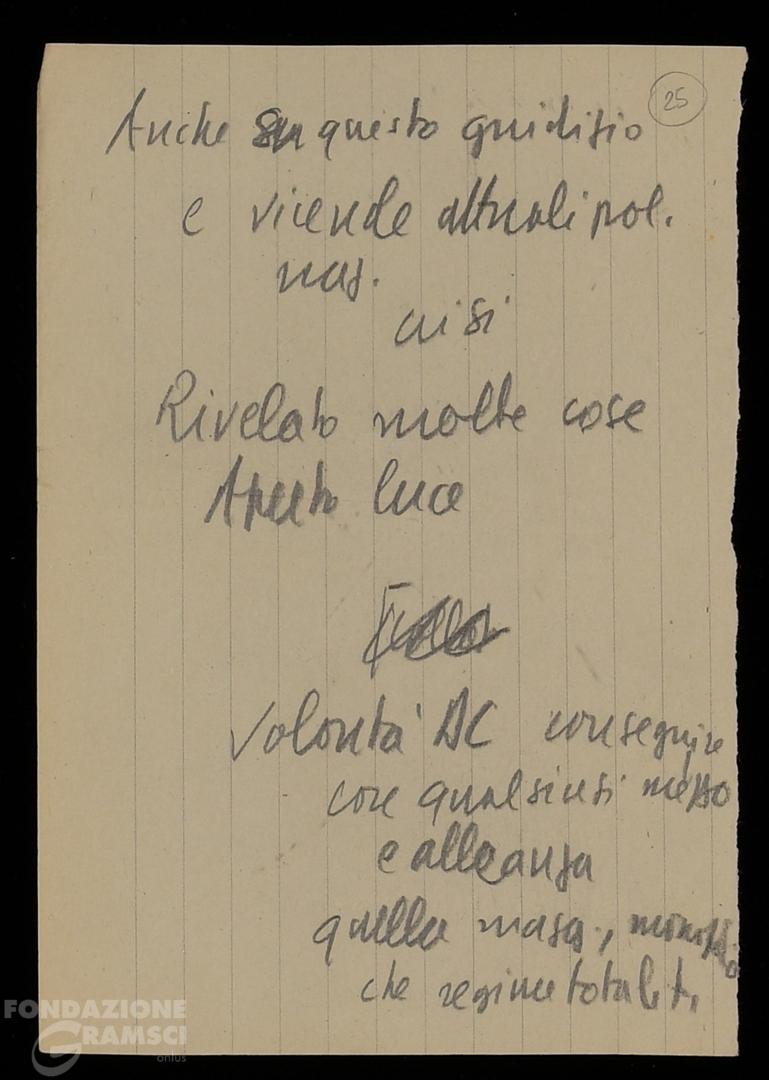 25
Anche su questo giudizio
e vicende attuali pol.
naz.
crisi
Rivelato molte cose
Aperto luce
Volontà DC conseguire
con qualsiasi mezzo
e alleanza
quella magg.,
che regime totalit.
FONDAZIONE
GRAMSCI
onlus